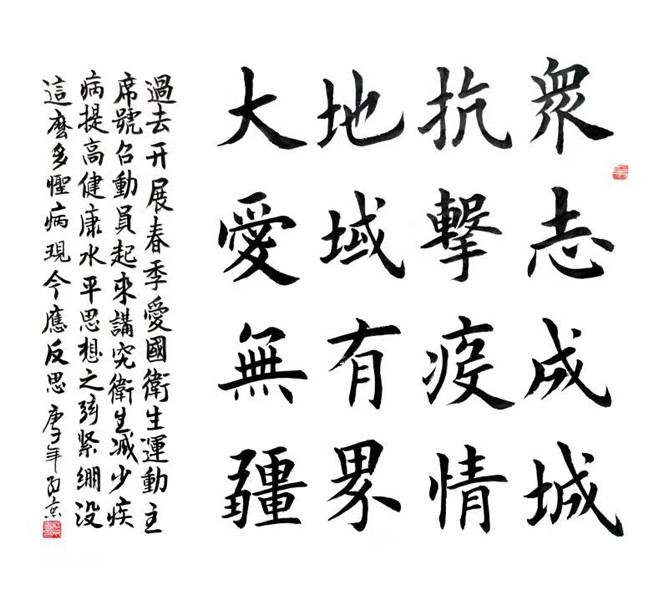 衆志成城
抗擊疫情
地域有界
大愛無疆
過去开展春季愛國衛生運動主
席號召動員起來講究衛生減少疾
病提高健康水平思想之弦緊綳没
這麼多病現今應反思 庚子年